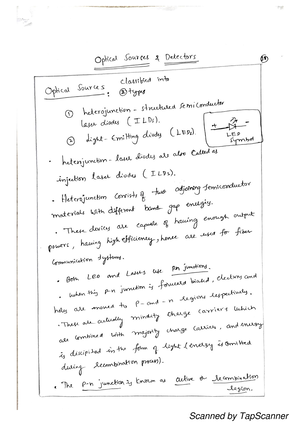 Optical Sources & Detectors
Optical Sources : classified into
② types
① heterojunction - structured semiconductor
laser diodes (ILDs).
② Light-Emitting diodes (LEDs).
LED
Symbol
• heterojunction - laser diodes are also called as
injection laser diodes (ILDs).
• Heterojunction consists of two adjoining semiconductor
materials with different band gap energies.
• These devices are capable of having enough output
powers, having high efficiency, hence are used for fiber
communication systems.
• Both LED and Lasers use pn junctions.
• when this p-n junction is forward biased, electrons and
holes are moved to P- and -n regions respectively.
• These are actually minority charge carriers which
are combined with majority charge carriers, and energy
is discipated in the form of light (energy is omitted
during recombination process).
• The p-n junction is known as active or recombination
region.
Scanned by TapScanner